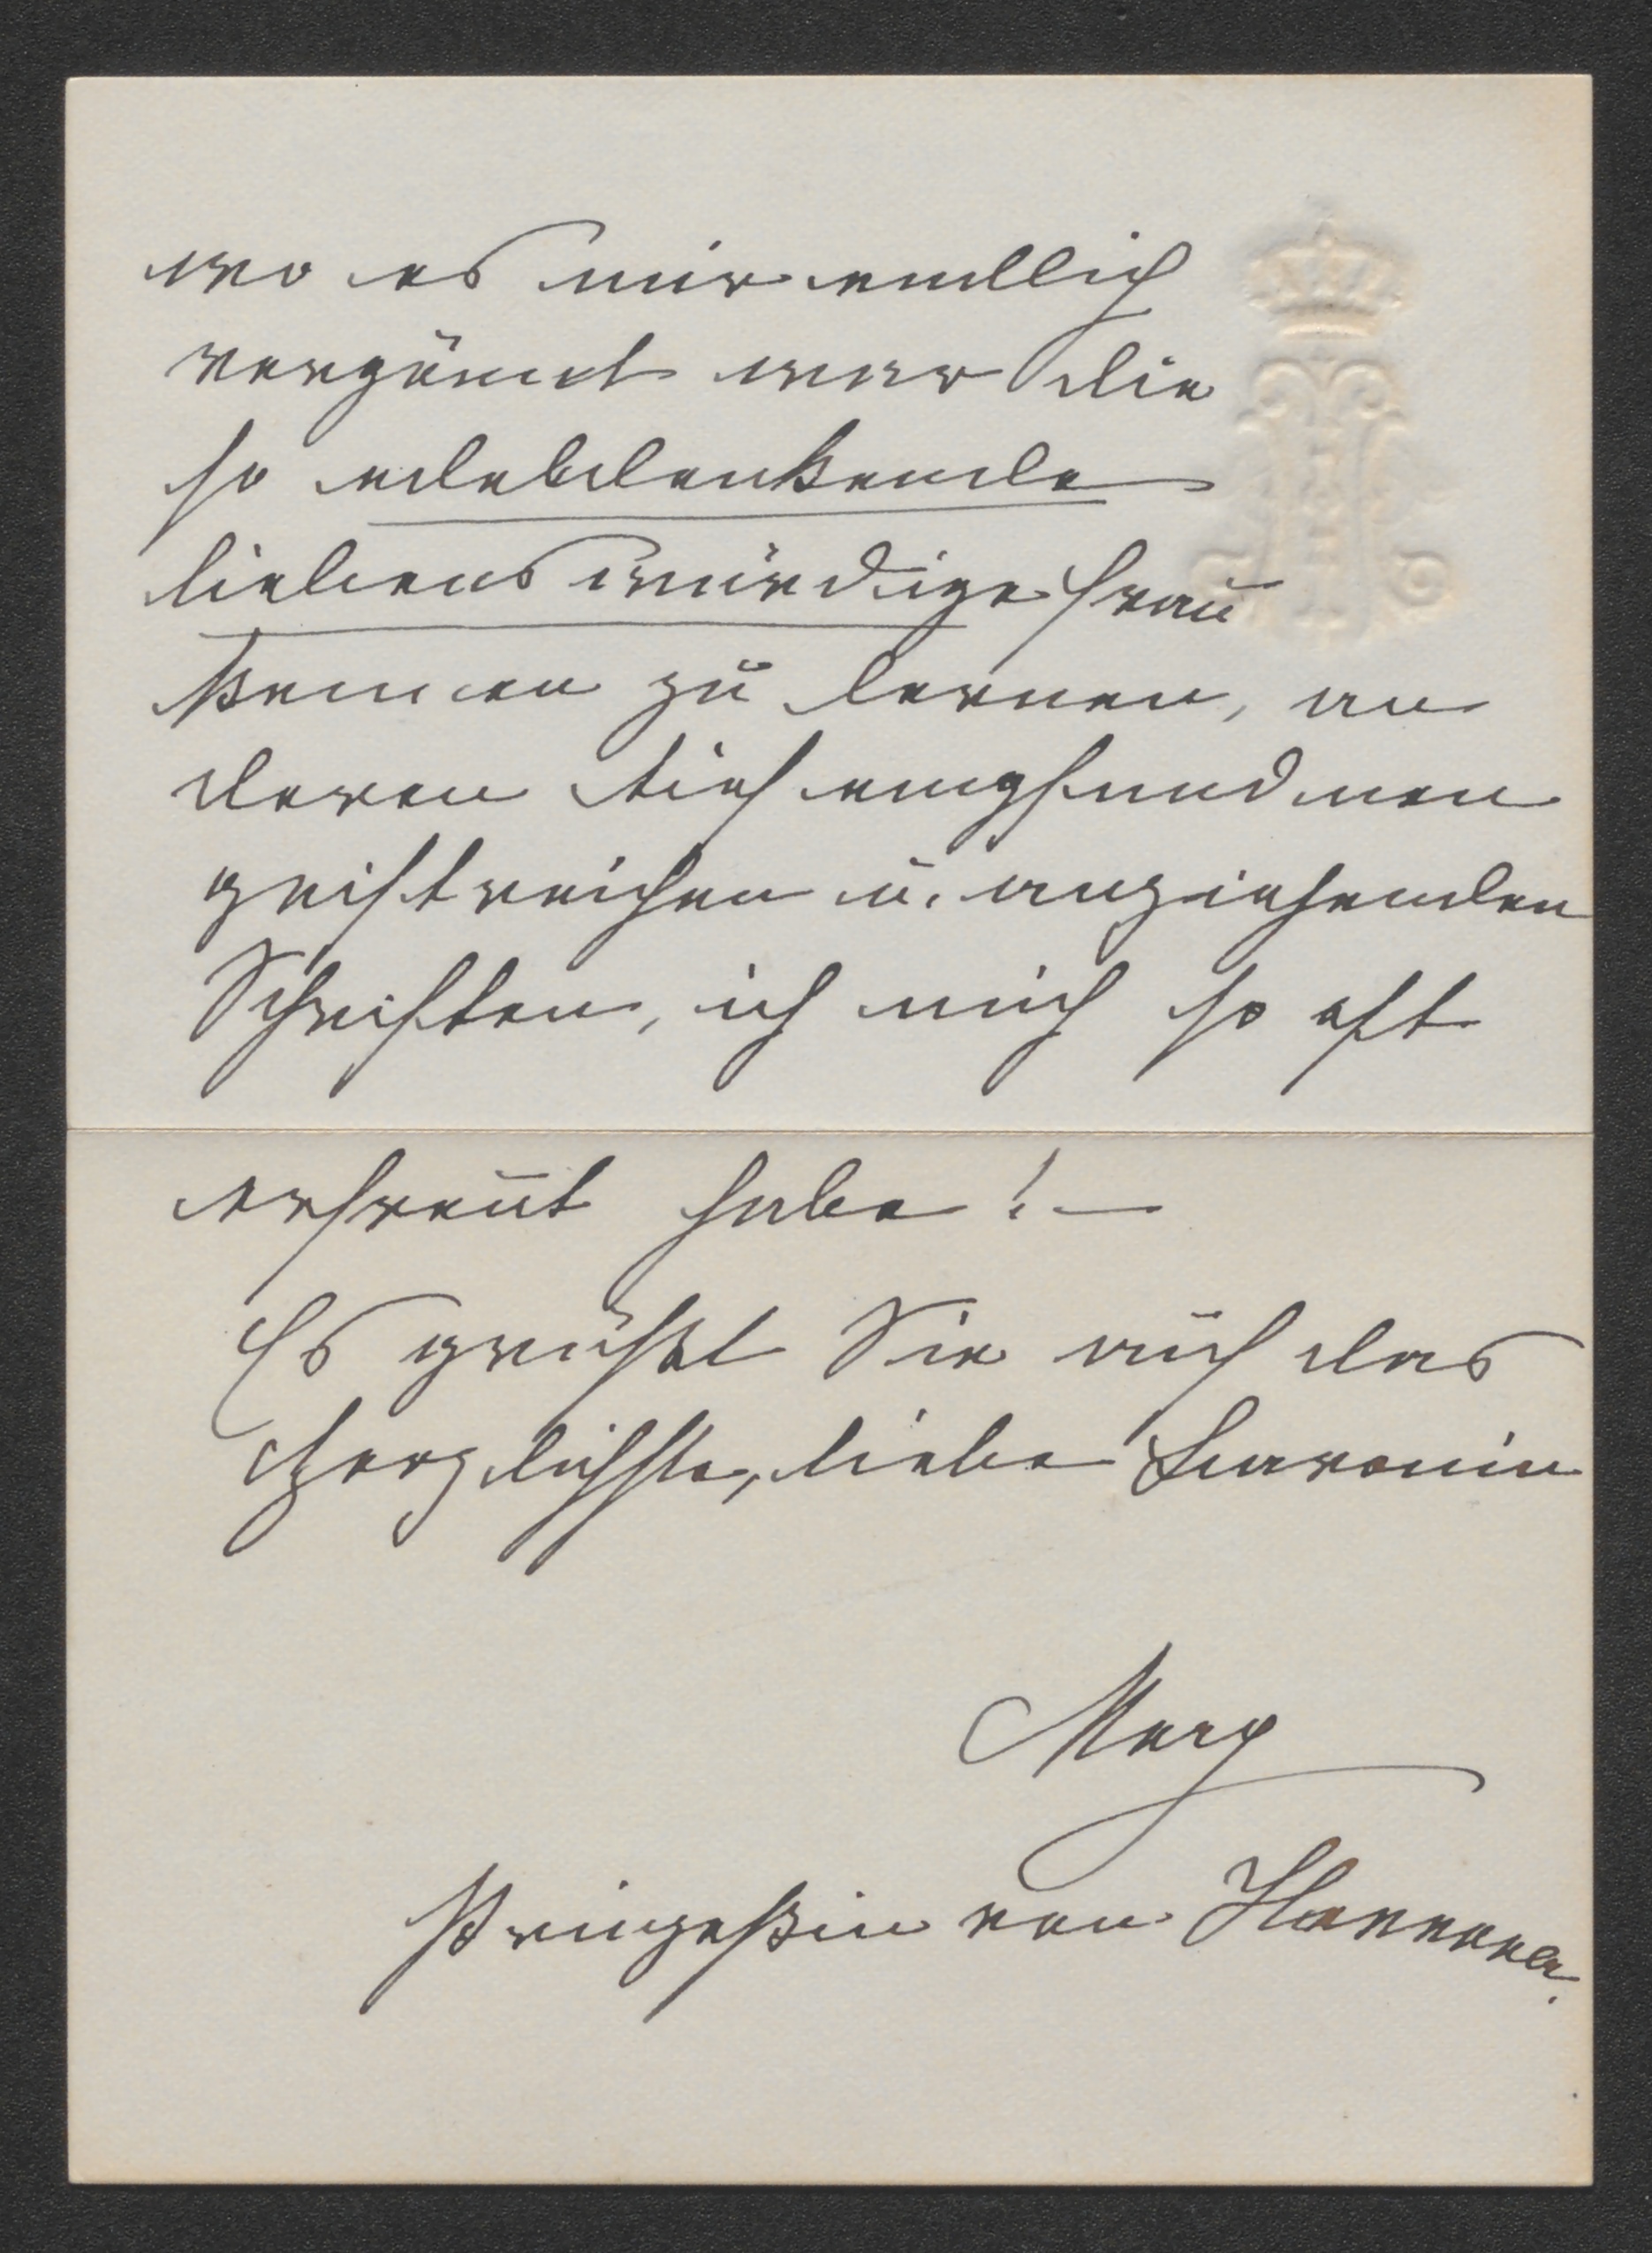 wo es mir endlich
vergönnt war die
so edeldenkende
liebenswürdige Frau
kennen zu lernen, an
deren tiefempfundnen
geistreichen u. anziehenden
Schriften, ich mich so oft
erfreut habe! —
Es grüßt Sie auf das
Herzlichste, liebe Baronin
Mary
Prinzeßin von Hannover.